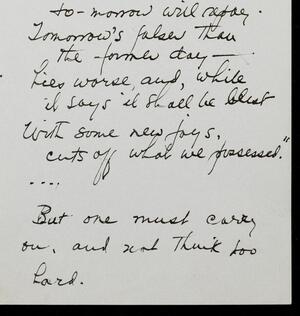 to-morrow will repay.
Tomorrow's falser than
the former day—
Lies worse, and, while
it says it shall be blest
With some new joys,
cuts off what we possessed."
....
But one must carry
on, and not think too
hard.